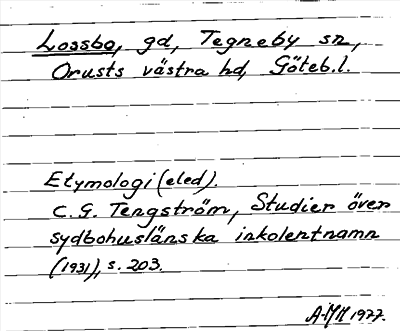 Lossbo, gd, Tegneby sn,
Orusts västra hd, Göteb.l.
Etymologi (eled).
C. G. Tengström, Studier över
sydbohuslänska inkolentnamn
(1931), s. 203.
AMH 1977.